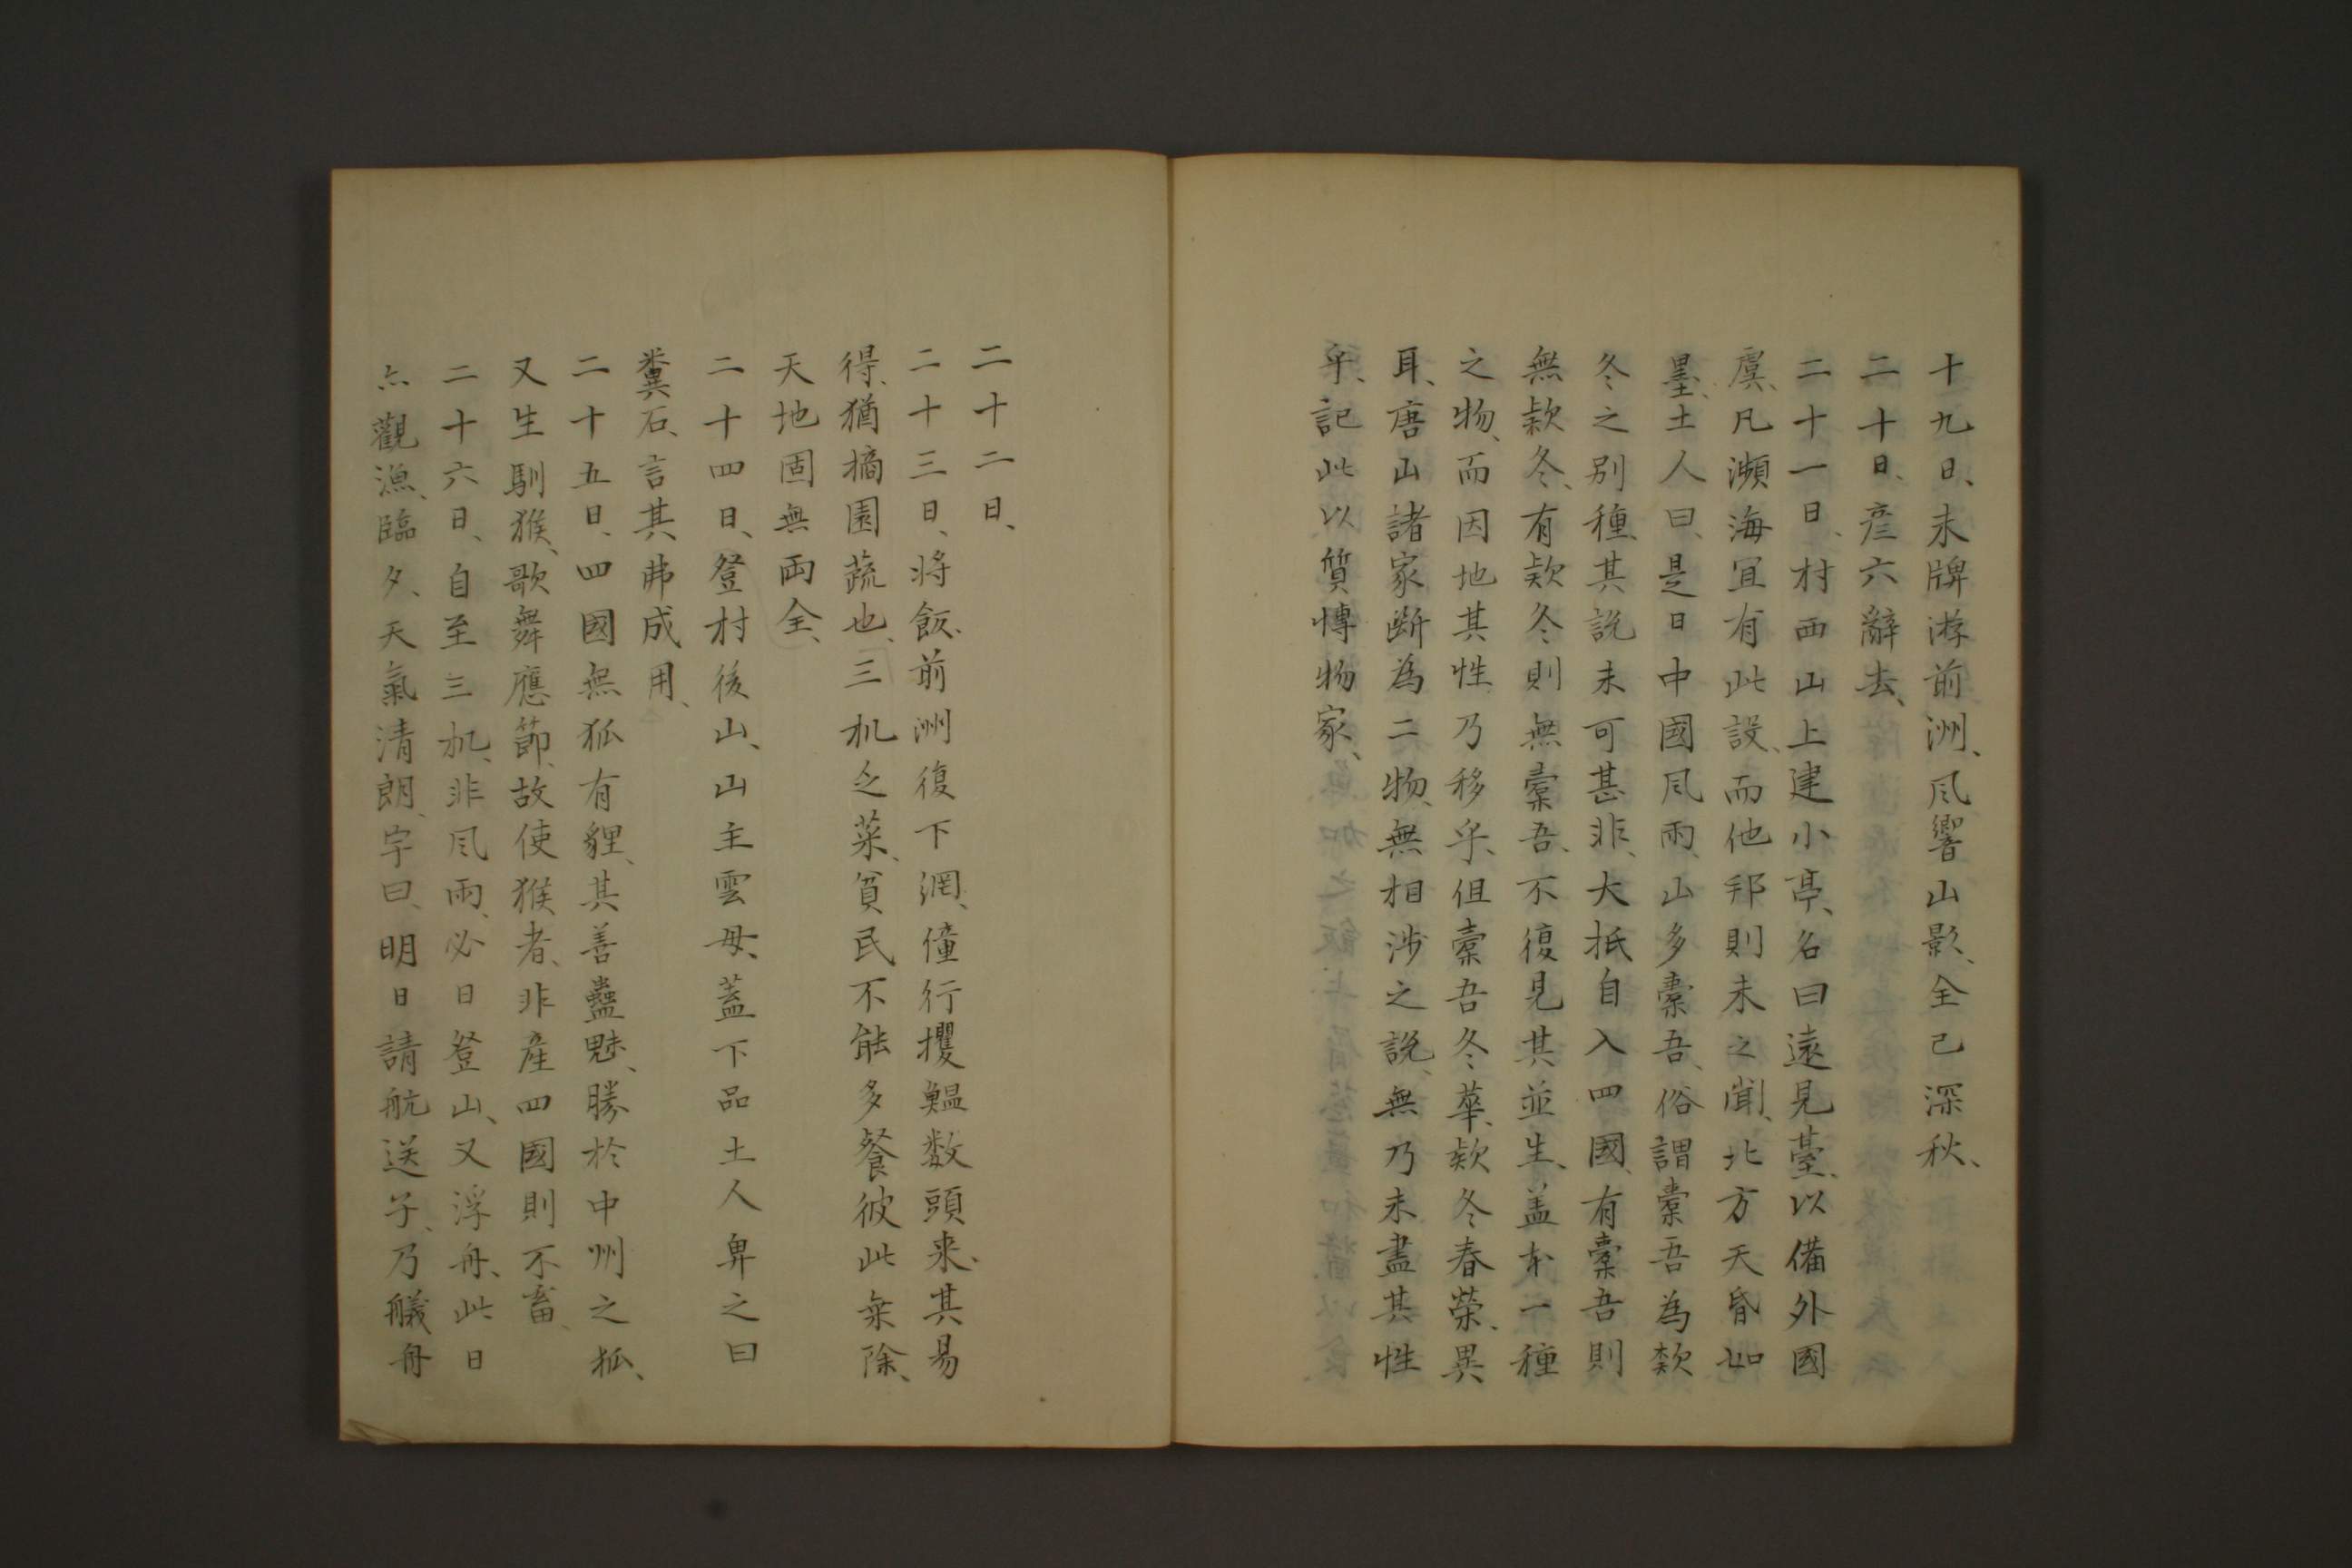 十九日、未牌游前洲、风響山影、全已深秋、
二十日、彦六辭去、
二十一日、村西山上建小亭、名曰遠見臺、以備外國
虞、凡瀕海宜有此設、而他邦則未之聞、北方天昏如
墨、土人曰、是日中國风雨、山多橐吾、俗謂橐吾為欵
冬之別種、其説未可甚非、大抵自入四國、有橐吾則
無欵冬、有欵冬則無橐吾、不復見其並生、盖本一種
之物、而因地其性乃移乎、但橐吾冬華、欵冬春榮、異
耳、唐山諸家断為二物、無相渉之説、無乃未盡其性
乎、記此以質博物家、
二十二日、
二十三日、将飯、前洲復下網、僮行攫鰮数頭来、其易
得、猶摘園蔬也、三机乏菜、貧民不能多餐、彼此乗除、
天地固無両全、
二十四日、登村後山、山主雲母、蓋下品土人卑之曰
糞石、言其弗成用、
二十五日、四國無狐有貍、其善蠱魅、勝於中州之狐、
又生馴猴、歌舞應節、故使猴者、非産四國則不畜、
二十六日、自至三机、非风雨、必日登山、又浮舟、此日
亦觀漁、臨夕、天氣清朗、字曰、明日請航送子、乃艤舟